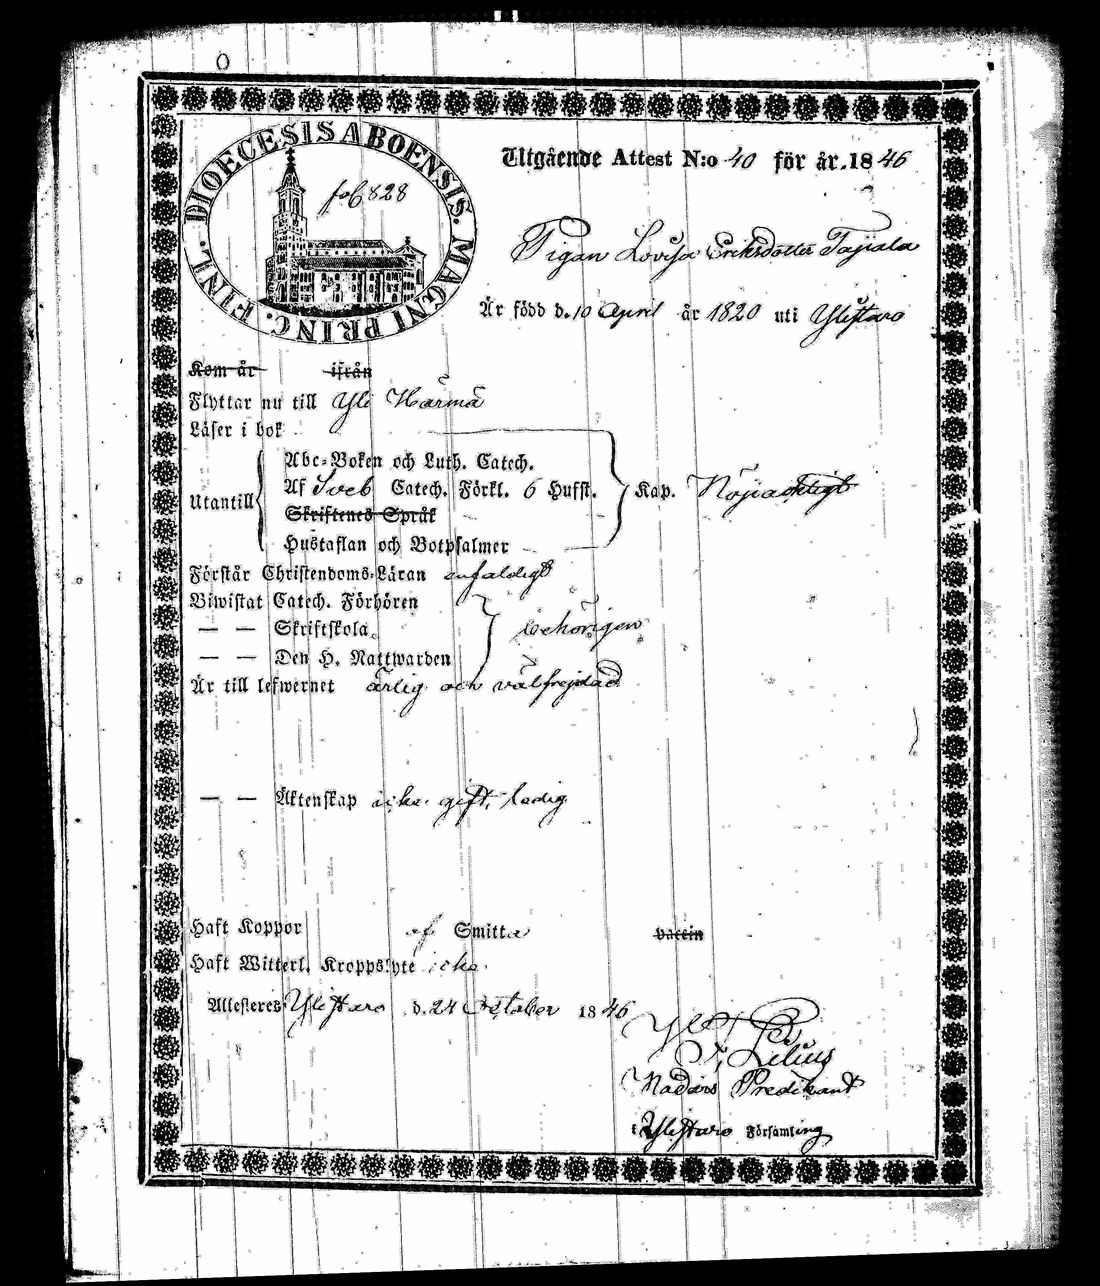 DIOECESIS ABOENSIS. MAGNI PRINC. FINL.
fol 828
Utgående Attest N:o 40 för år 1846
Pigan Lovisa Eriksdotter Tajiala
Är född d. 10 April år 1820 uti Ylistaro
Kom år ifrån
Flyttar nu till Yli Härmä
Läser i bok
Abc-Boken och Luth. Catech.
Utantill Af Sveb Catech. Förkl. 6 Hufst. Kap. Nöjaktigt
Skriftenes Språk
Hustaflan och Botpsalmer
Förstår Christendoms-Läran enfaldigt
Biwistat Catech. Förhören
— — Skriftskola behörigen
— — Den H. Nattwarden
Är till lefwernet ärlig och välfrejdad
— — Äktenskap icke gift, ledig
Haft Koppor af Smitta vaccin
Haft Witterl. Kroppslyte icke
Attesteres Ylistaro d. 24 October 1846
Lilius
Nådårs Predikant
i Ylistaro Församling